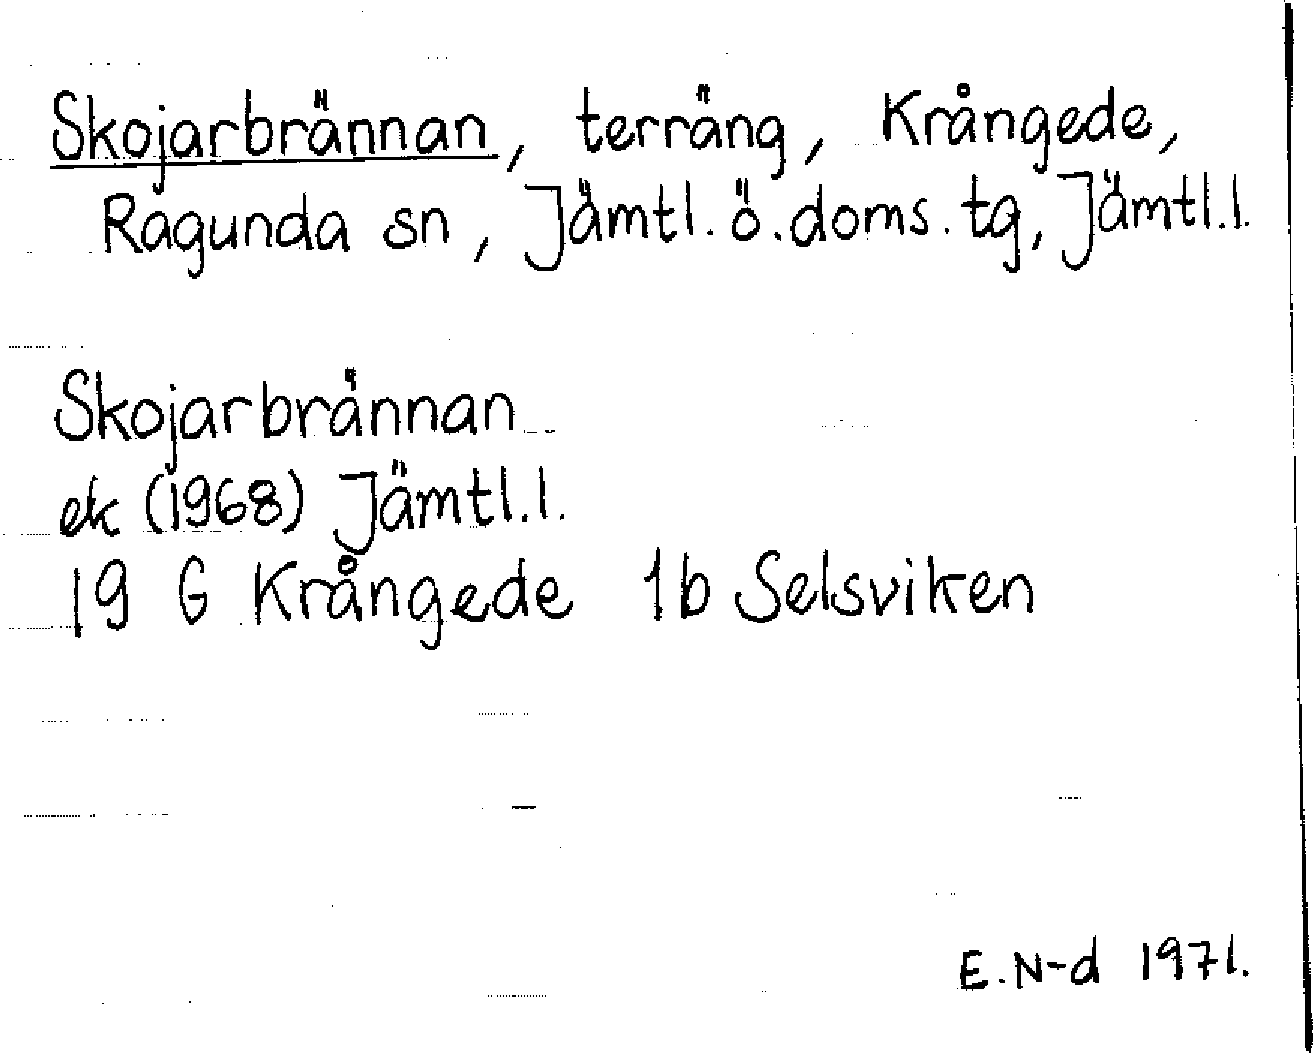 Skojarbrännan, terräng, Krångede,
Ragunda sn, Jämtl. ö. doms. tg, Jämtl.l.
Skojarbrännan
ek (1968) Jämtl.l.
19 G Krångede 1b Selsviken
E.N-d 1971.